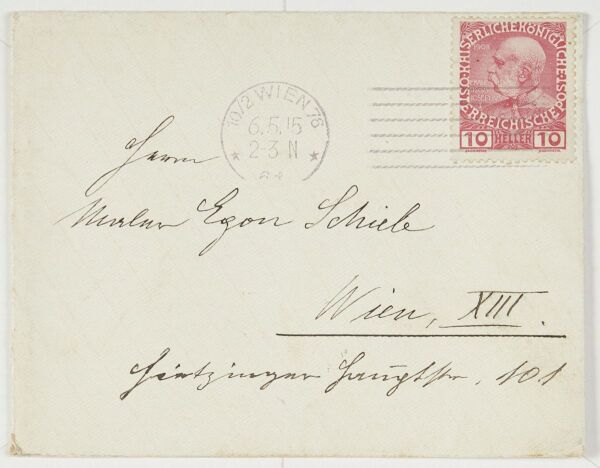 KAISERLICHE KÖNIGLICHE
ÖSTERREICHISCHE POST
1908
10 HELLER 10
10/2 WIEN 76
6.5.15
2-3 N
Herrn
Maler Egon Schiele
Wien, XIII.
Hietzinger Hauptstr. 101